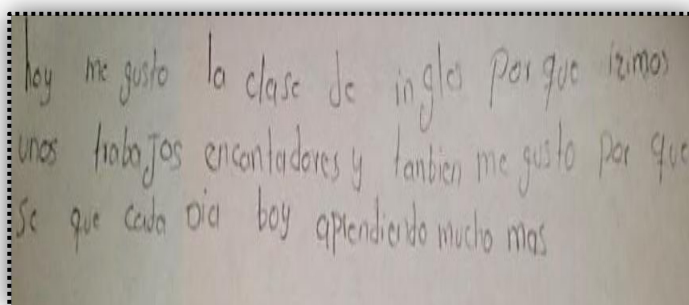 hoy me gusto la clase de ingles por que izimos
unos trabajos encantadores y tanbien me gusto por que
se que cada dia boy aprendiendo mucho mas